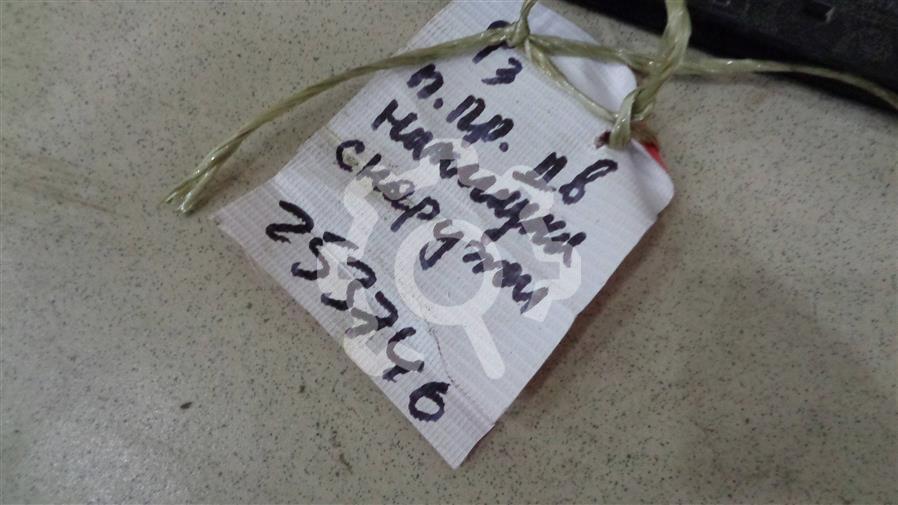 ГЗ
п. пр. дв
накладка
снаружи
253746